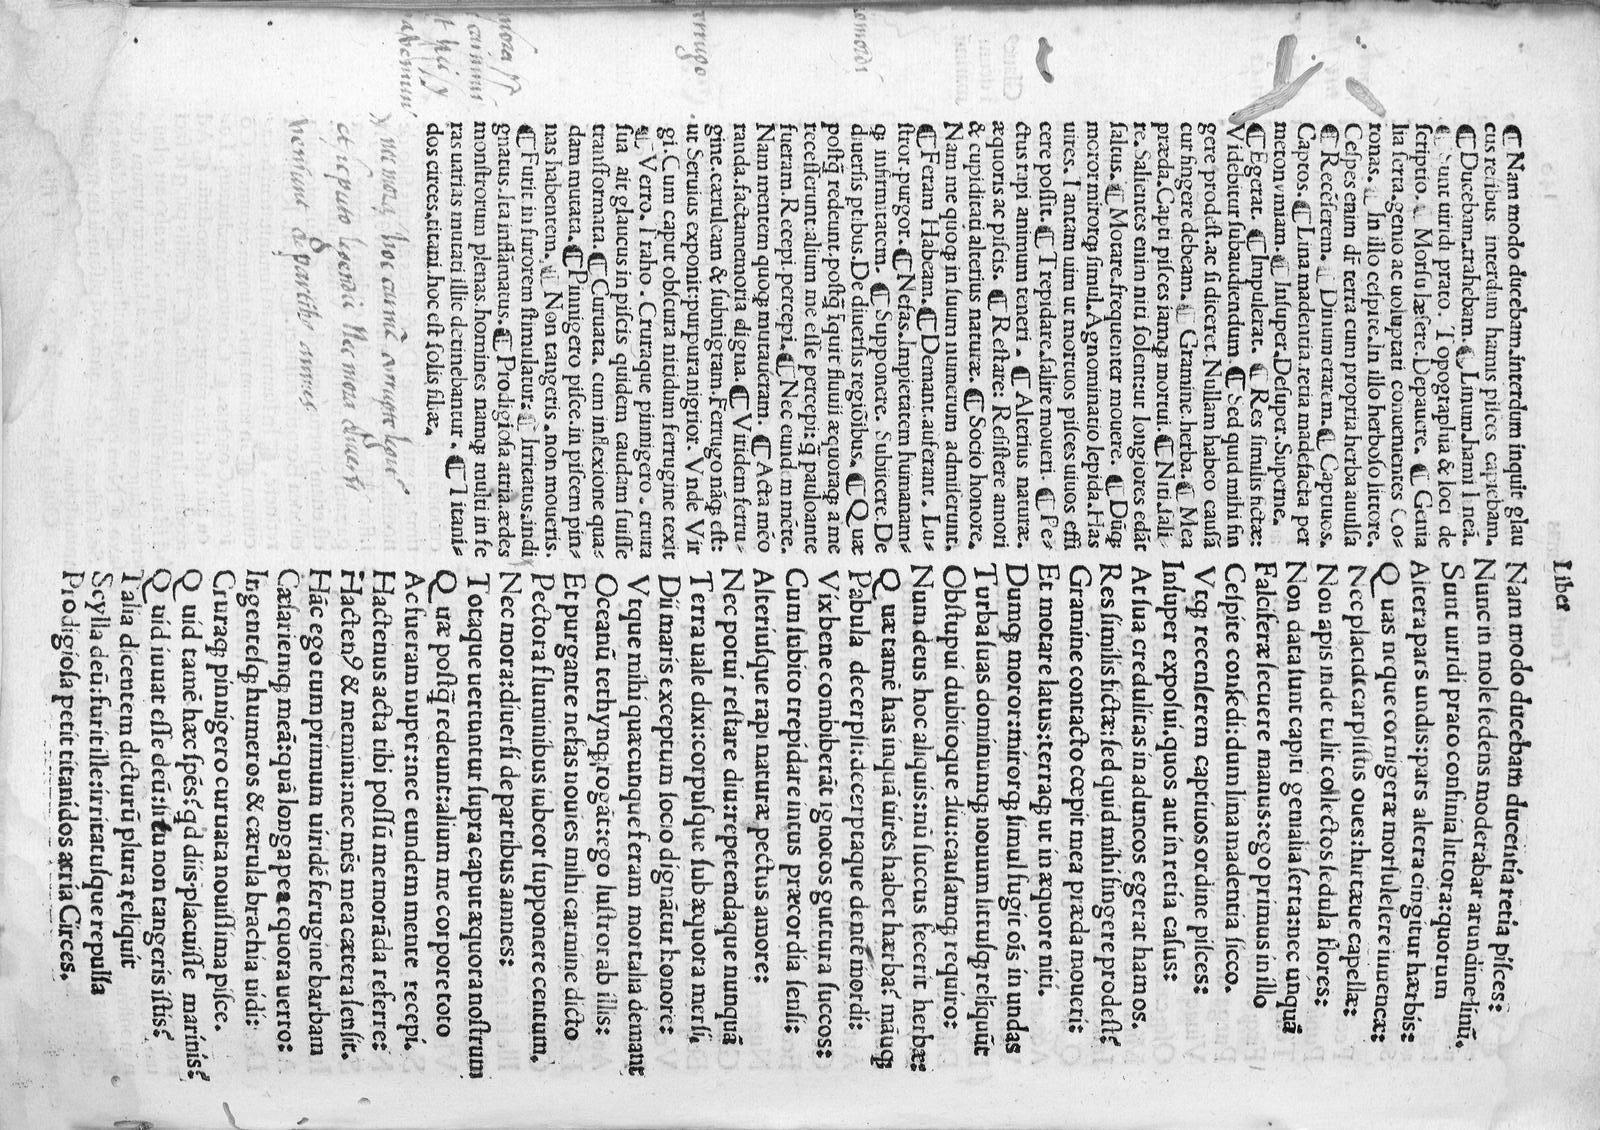 Liber
Nam modo ducebam ducentia retia pisces:
Nunc in mole sedens moderabar arundine linū.
Sunt uiridi prato confinia littora: quorum
Altera pars undis: pars altera cingitur hærbis:
Quas neque cornigeræ morsu lesere iuuencæ:
Nec placidę carpsistis oues: hirtæue capellæ:
Non apis inde tulit collectos sedula flores:
Non data sunt capiti genialia serta: nec unquā
Falciferæ secuere manus: ego primus in illo
Cespite consedi: dum lina madentia sicco.
Vtqꝫ recenserem captiuos ordine pisces:
Insuper exposui. quos aut in retia casus:
Aut sua credulitas in aduncos egerat hamos.
Res similis fictæ: sed quid mihi fingere prodest?
Gramine contacto cœpit mea præda moueri:
Et motare latus: terraqꝫ ut in æquore niti.
Dumqꝫ moror: mirorqꝫ simul fugit oīs in undas
Turba suas dominumqꝫ nouum littusqꝫ reliquūt
Obstupui dubitoque diu: causamqꝫ requiro:
Num deus hoc aliquis: nū succus fecerit herbæ:
Quæ tamē has inquā uires habet hærba? māuqꝫ
Pabula decerpsi: decerptaque dentē mordi:
Vix bene combiberāt ignotos guttura succos:
Cum subito trepidare intus præcordia sensi:
Alteriusque rapi naturæ pectus amore:
Nec potui restare diu: repetendaque nunquā
Terra uale dixi: corpusque sub æquora mersi.
Dii maris exceptum socio dignātur honore:
Vtque mihi quæcunque feram mortalia demant
Oceanū tethynqꝫ rogāt: ego lustror ab illis:
Et purgante nefas nouies mihi carmine dicto
Pectora fluminibus iubeor supponere centum.
Nec mora: diuersi de partibus amnes:
Totaque uertuntur supra caput æquora nostrum
Quæ postq̄ redeunt: alium me corpore toto
Ac fueram nuper: nec eundem mente recepi.
Hactenus acta tibi possū memorāda referre:
Hacten⁹ & memini: nec mēs mea cætera sensit.
Hāc ego tum primum uiridē ferugine barbam
Cæsariemqꝫ meā: quā longa per æquora uerro:
Ingentesqꝫ humeros & cærula brachia uidi:
Cruraqꝫ pinnigero curuata nouissima pisce.
Quid tamē hæc spēs? qd diis placuisse marinis?
Quid iuuat esse deū: si tu non tangeris istis?
Talia dicentem dicturū plura reliquit
Scylla deū: furit ille: irritatusque repulsa
Prodigiosa petit titanidos atria Circes.
¶ Nam modo ducebam. interdum inquit glau
cus retibus interdum hamis pisces capiebam.
¶ Ducebam. trahebam. ¶ Linum. hami lineā.
¶ Sunt uiridi prato. Topographia & loci de
scriptio. ¶ Morsu læsere. Depauere. ¶ Genia
lia serta. genio ac uoluptati conuenientes Co-
ronas. ¶ In illo cespite. In illo herboso littore.
Cespes enim dr̄ terra cum propria herba auulsa
¶ Recēserem. ¶ Dinumerarem. ¶ Captiuos.
Captos. ¶ Lina madentia. retia madefacta per
metonymiam. ¶ Insuper. Desuper. Superne.
¶ Egerat. ¶ Impulerat. ¶ Res similis fictæ:
Videbitur subaudiendum. ¶ Sed quid mihi fin
gere prodest. ac si diceret. Nullam habeo causā
cur fingere debeam. ¶ Gramine. herba. ¶ Mea
præda. Capti pisces iamqꝫ mortui. ¶ Niti. sali-
re. Salientes enim niti solent: ut longiores edāt
saltus. ¶ Motare. frequenter mouere. ¶ Dūqꝫ
moror mirorqꝫ simul. Agnominatio lepida. Has
uires. Tantam uim ut mortuos pisces uiuos effi
cere possit. ¶ Trepidare. salire moueri. ¶ Pe-
ctus rapi animum teneri. ¶ Alterius naturæ.
æquoris ac piscis. ¶ Restare: Resistere amori
& cupiditati alterius naturæ. ¶ Socio honore.
Nam me quoqꝫ in suum numerum admiserunt.
¶ Feram Habeam. ¶ Demant. auferant. Lu-
stror. purgor. ¶ Nefas. Impietatem humanam-
qꝫ infirmitatem. ¶ Supponere. Subiicere. De
diuersis ptibus. De diuersis regiōibus. ¶ Quæ
postq̄ redeunt. postq̄ īquit fluuii æquoraqꝫ a me
recesserunt: alium me esse percepi: q̄ paulo ante
fueram. Recepi. percepi. ¶ Nec eundem mēte.
Nam mentem quoqꝫ mutaueram. ¶ Acta mēo
randa. facta memoria digna. ¶ Viridem ferru-
gine. cæruleam & subnigram. Ferrugo nāqꝫ est:
ut Seruius exponit: purpura nigrior. Vnde Vir
gi. Cum caput obscura nitidum ferrugine texit
¶ Verro. Traho. Cruraque pinnigero. crura
sua ait glaucus in piscis quidem caudam fuisse
transformata. ¶ Curuata. cum inflexione qua-
dam mutata. ¶ Pinnigero pisce. in piscem pin-
nas habentem. ¶ Non tangeris. non moueris.
¶ Furit in furorem stimulatur. ¶ Irritatus. indi
gnatus. Ira inflāmatus. ¶ Prodigiosa atria. ædes
monstrorum plenas. homines namqꝫ multi in fe
ras uarias mutati illic detinebantur. ¶ Titani-
dos circes. titani. hoc est solis filiæ.